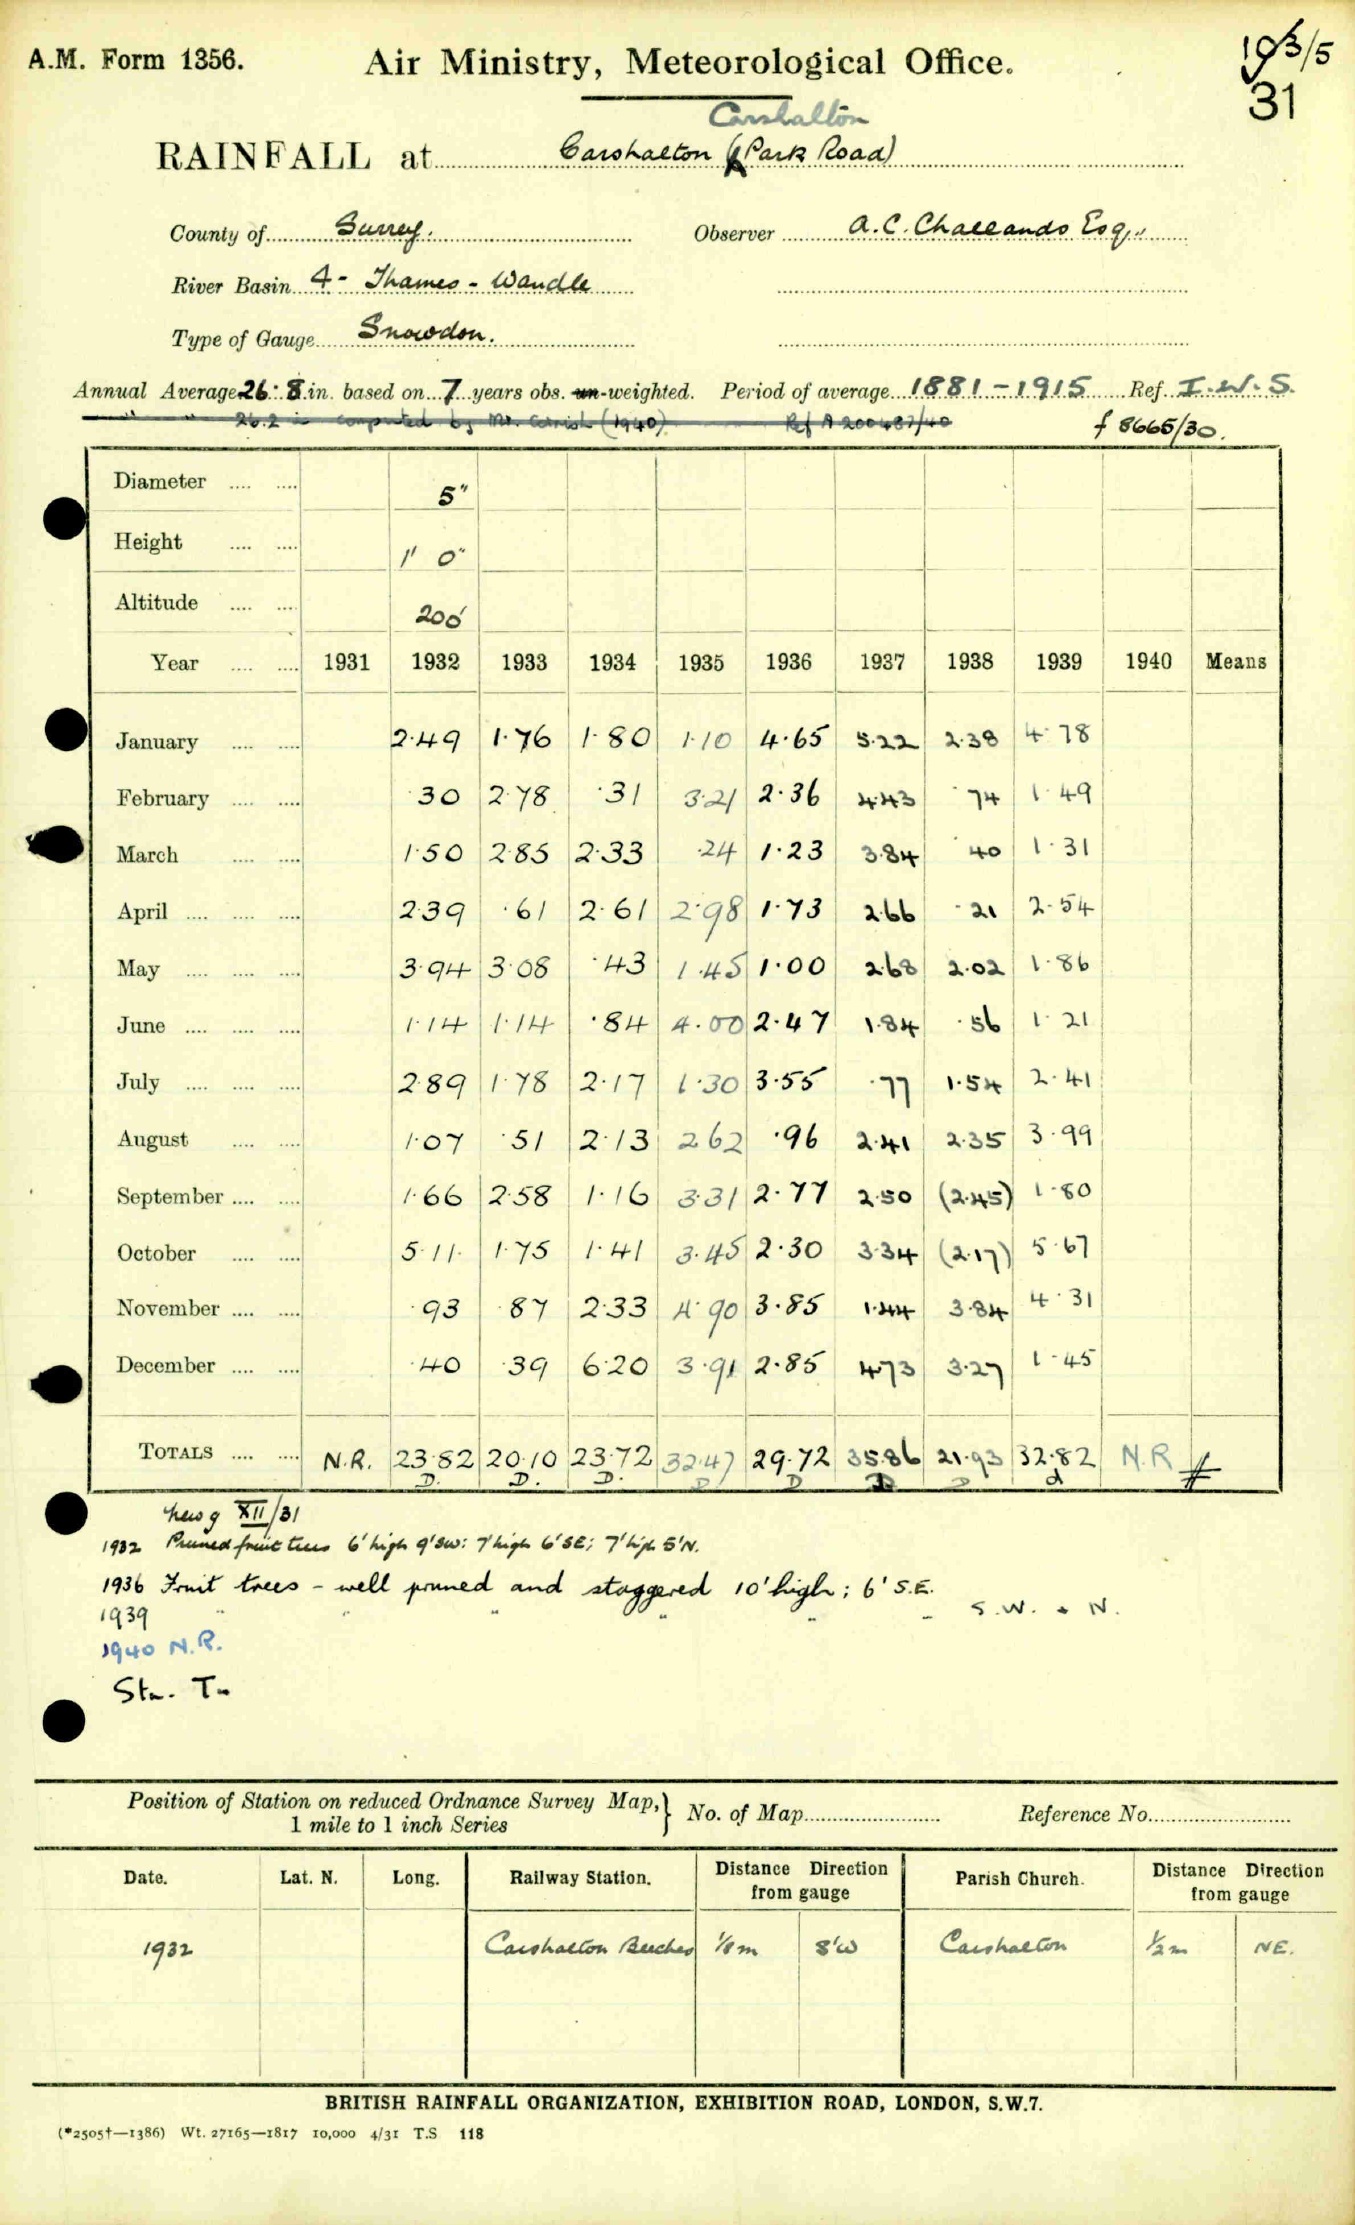 A.M. Form 1356.
Air Ministry, Meteorological Office.
193/5
31
Carshalton
RAINFALL at Carshalton (Park Road)
County of Surrey. Observer A.C. Challands Esq.,
River Basin 4 - Thames - Wandle
Type of Gauge Snowdon.
Annual Average 26.8 in. based on 7 years obs. un-weighted. Period of average 1881-1915 Ref. I.W.S.
" " 26.2 in computed by Mr. (1940) Ref A 200487/40
f 8665/30.
Diameter .... .... 5"
Height .... .... 1' 0"
Altitude .... .... 200'
Year .... .... 1931 1932 1933 1934 1935 1936 1937 1938 1939 1940 Means
January .... .... 2.49 1.76 1.80 1.10 4.65 5.22 2.38 4.78
February .... .... .30 2.78 .31 3.21 2.36 4.43 .74 1.49
March .... .... 1.50 2.85 2.33 .24 1.23 3.84 .40 1.31
April .... .... .... 2.39 .61 2.61 2.98 1.73 2.66 .21 2.54
May .... .... .... 3.94 3.08 .43 1.45 1.00 2.68 2.02 1.86
June .... .... .... 1.14 1.14 .84 4.00 2.47 1.84 .56 1.21
July .... .... .... 2.89 1.78 2.17 1.30 3.55 .77 1.54 2.41
August .... .... 1.07 .51 2.13 2.62 .96 2.41 2.35 3.99
September .... .... 1.66 2.58 1.16 3.31 2.77 2.50 (2.45) 1.80
October .... .... 5.11 1.75 1.41 3.45 2.30 3.34 (2.17) 5.67
November .... .... .93 .87 2.33 4.90 3.85 1.44 3.84 4.31
December .... .... .40 .39 6.20 3.91 2.85 4.73 3.27 1.45
TOTALS .... .... N.R. 23.82 20.10 23.72 32.47 29.72 35.86 21.93 32.82 N.R
D. D. D. D D D D d
New g XII/31
1932 Pruned fruit trees 6' high 9' SW: 7' high 6' SE; 7' high 5' N.
1936 Fruit trees - well pruned and staggered 10' high; 6' S.E.
1939 " " " " " S.W. + N.
1940 N.R.
Stn. T
Position of Station on reduced Ordnance Survey Map, 1 mile to 1 inch Series } No. of Map Reference No.
Date. Lat. N. Long. Railway Station. Distance Direction from gauge Parish Church. Distance Direction from gauge
1932 Carshalton Beeches 1/8 m S'W Carshalton 1/2 m NE.
BRITISH RAINFALL ORGANIZATION, EXHIBITION ROAD, LONDON, S.W.7.
(*2505†—1386) Wt. 27165—1817 10,000 4/31 T.S 118